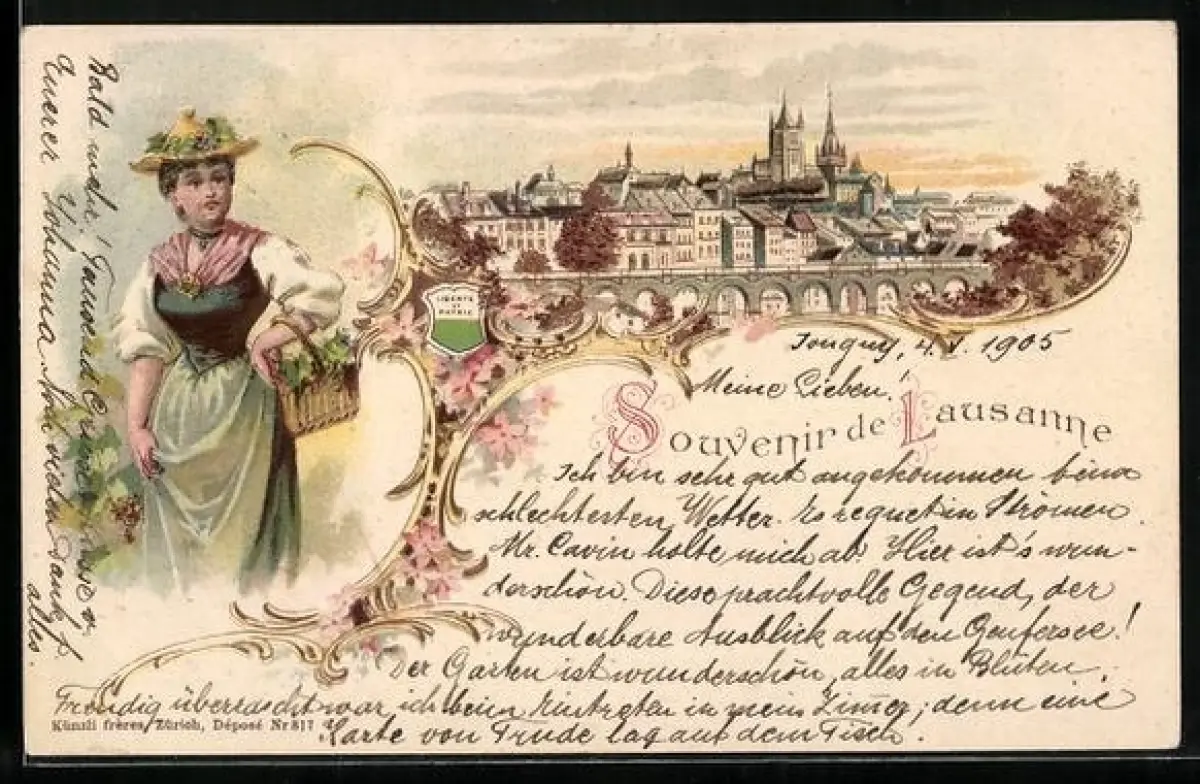 LIBERTÉ
ET
PATRIE
Jongny, 4. V. 1905
Meine Lieben!
Souvenir de Lausanne
Ich bin sehr gut angekommen beim
schlechtesten Wetter. Es regnet in Strömen.
Mr. Cavin holte mich ab. Hier ist's wun-
derschön. Diese prachtvolle Gegend, der
wunderbare Ausblick auf den Genfersee!
Der Garten ist wunderschön, alles in Blüten.
Freudig überrascht war ich beim Eintreten in mein Zimmer, denn eine
Karte von Trude lag auf dem Tisch.
Künzli frères, Zürich, Déposé Nr 817
Bald mehr! Tausend Grüsse v.
Eurer Johanna. Noch vielen Dank f.
alles.